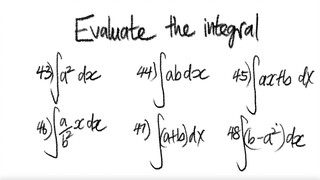 Evaluate the integral
43) ∫a² dx 44) ∫ab dx 45) ∫ax+b dx
46) ∫a/b² x dx 47) ∫(a+b)dx 48) ∫(b-a²)dx